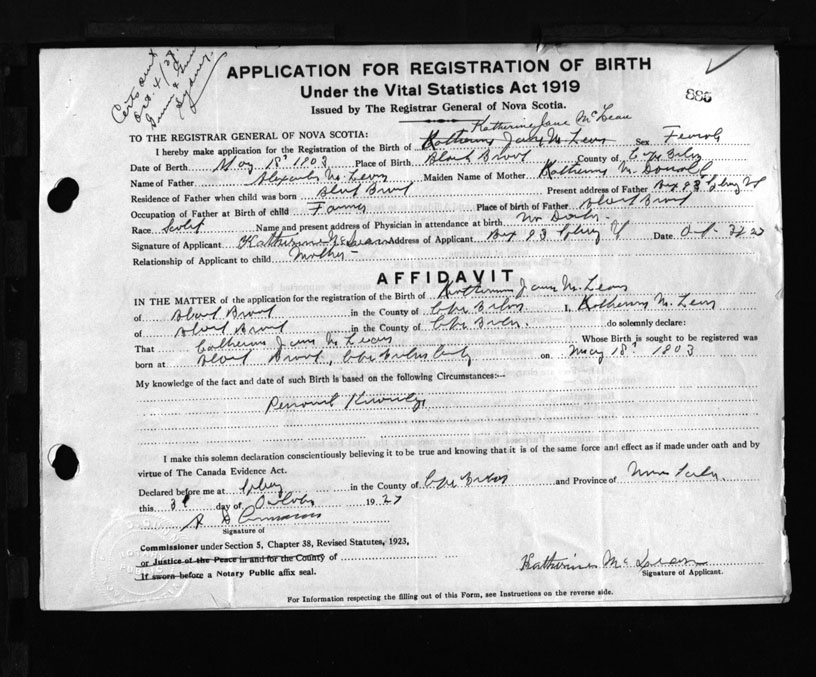 Certs sent
Oct 4/27
Sydney
APPLICATION FOR REGISTRATION OF BIRTH
Under the Vital Statistics Act 1919
885
Issued by The Registrar General of Nova Scotia.
Katherine Jane McLean
TO THE REGISTRAR GENERAL OF NOVA SCOTIA:
I hereby make application for the Registration of the Birth of Katherine Jane McLean Sex Female
Date of Berth May 18th 1903 Place of Birth Black Brook County of Cape Breton
Name of Father Alexander McLean Maiden Name of Mother Katherine McDonald
Residence of Father when child was born Black Brook Present address of Father Box 93
Occupation of Father at Birth of child Farmer Place of birth of Father Black Brook
Race Scotch Name and present address of Physician in attendance at birth No Doctor
Signature of Applicant Katherine McLean Address of Applicant Box 93 Date Oct 3 27
Relationship of Applicant to child Mother
AFFIDAVIT
IN THE MATTER of the application for the registration of the Birth of Katherine Jane McLean
of Black Brook in the County of Cape Breton I, Katherine McLean
of Black Brook in the County of Cape Breton do solemnly declare:
That Catherine Jane McLean Whose Birth is sought to be registered was
born at Black Brook, Cape Breton County on May 18th 1903
My knowledge of the fact and date of such Birth is based on the following Circumstances:—
Personal Knowledge
I make this solemn declaration conscientiously believing it to be true and knowing that it is of the same force and effect as if made under oath and by
virtue of The Canada Evidence Act.
Declared before me at in the County of Cape Breton and Province of Nova Scotia
this 3rd day of October 1927
Signature of
Commissioner under Section 5, Chapter 38, Revised Statutes, 1923,
or Justice of the Peace in and for the County of
If sworn before a Notary Public affix seal.
Katherine McLean
Signature of Applicant.
For Information respecting the filling out of this Form, see Instructions on the reverse side.